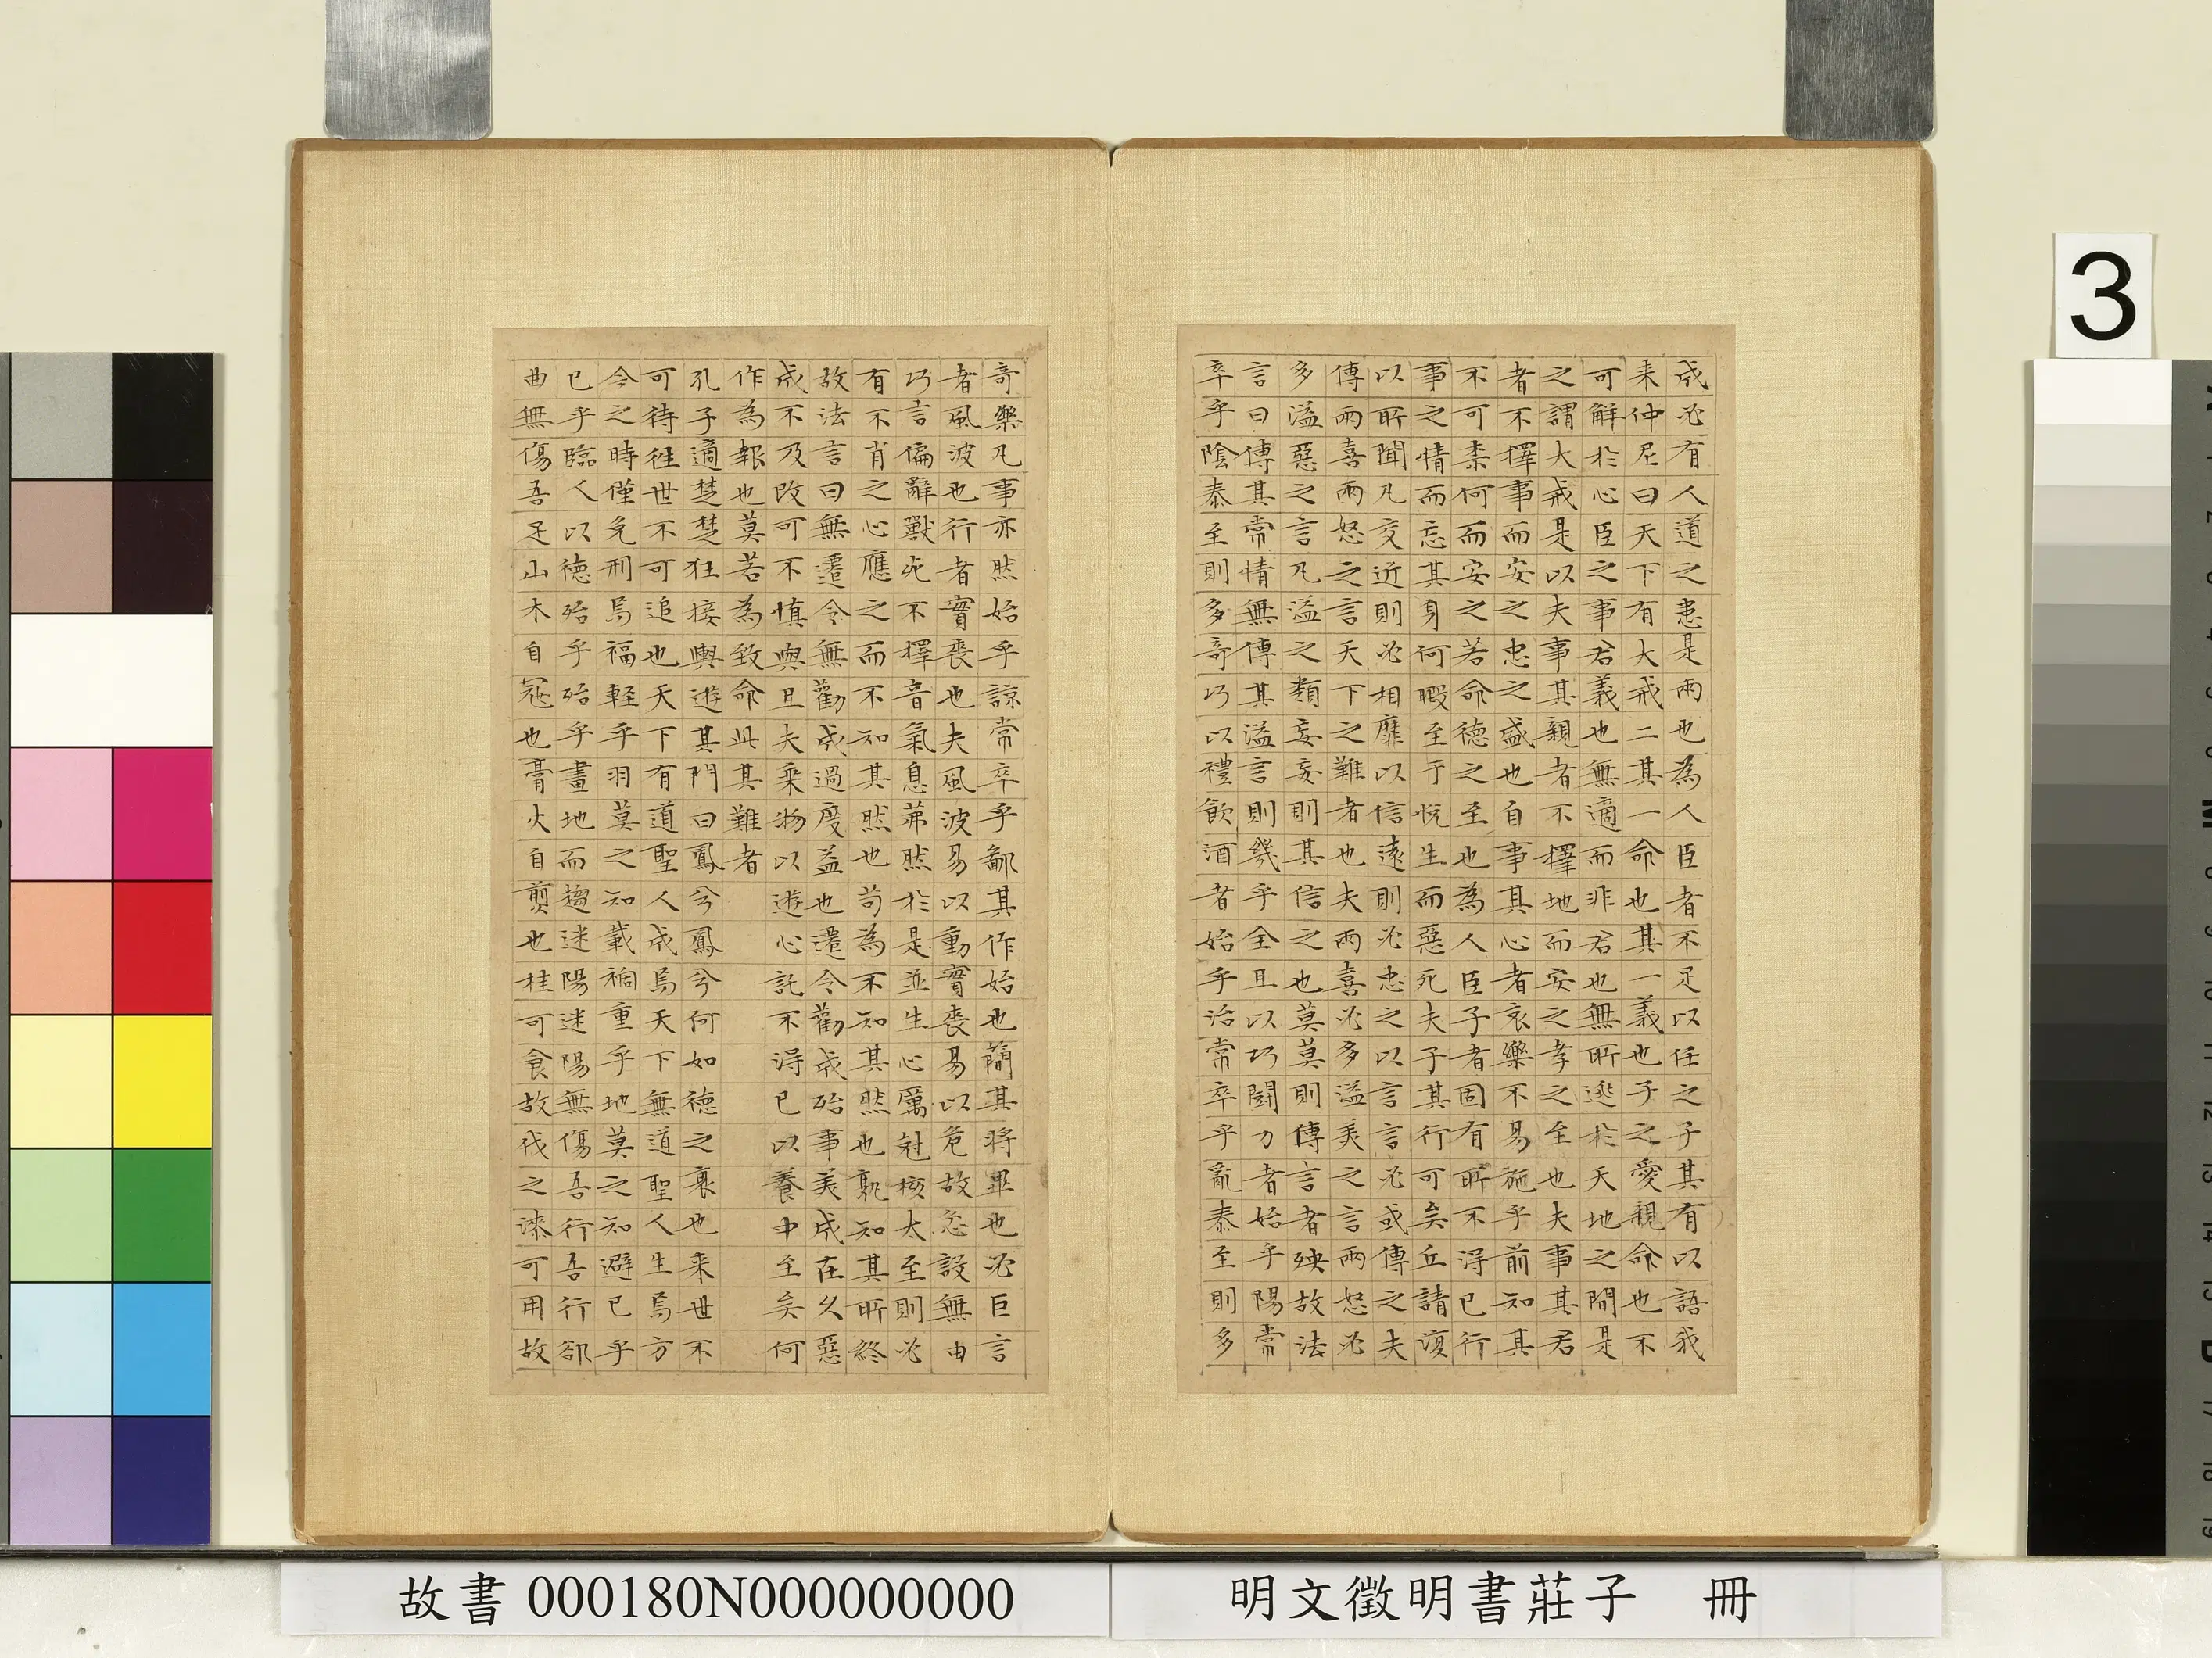 成必有人道之患是兩也為人臣者不足以任之子其有以語我
来仲尼曰天下有大戒二其一命也其一義也子之愛親命也不
可解於心臣之事君義也無適而非君也無所逃於天地之間是
之謂大戒是以夫事其親者不擇地而安之孝之至也夫事其君
者不擇事而安之忠之盛也自事其心者哀樂不易施乎前知其
不可柰何而安之若命德之至也為人臣子者固有所不得已行
事之情而忘其身何暇至于悅生而惡死夫子其行可矣丘請復
以所聞凡交近則必相靡以信遠則必忠之以言言必或傳之夫
傳兩喜兩怒之言天下之難者也夫兩喜必多溢美之言兩怒必
多溢惡之言凡溢之類妄妄則其信之也莫莫則傳言者殃故法
言曰傳其常情無傳其溢言則幾乎全且以巧鬪力者始乎陽常
卒乎陰泰至則多奇巧以禮飲酒者始乎治常卒乎亂泰至則多
奇樂凡事亦然始乎諒常卒乎鄙其作始也簡其將畢也必巨言
者風波也行者實喪也夫風波易以動實喪易以危故忿設無由
巧言偏辭獸死不擇音氣息茀然於是並生心厲剋核太至則必
有不肖之心應之而不知其然也苟為不知其然也孰知其所終
故法言曰無遷令無勸成過度益也遷令勸成殆事美成在久惡
成不及改可不慎與且夫乘物以遊心託不得已以養中至矣何
作為報也莫若為致命此其難者
孔子適楚楚狂接輿遊其門曰鳳兮鳳兮何如德之衰也来世不
可待往世不可追也天下有道聖人成焉天下無道聖人生焉方
今之時僅免刑焉福輕乎羽莫之知載禍重乎地莫之知避已乎
已乎臨人以德殆乎殆乎畫地而趨迷陽迷陽無傷吾行吾行郤
曲無傷吾足山木自寇也膏火自煎也桂可食故伐之漆可用故
3
故書 000180N000000000
明文徵明書莊子 冊